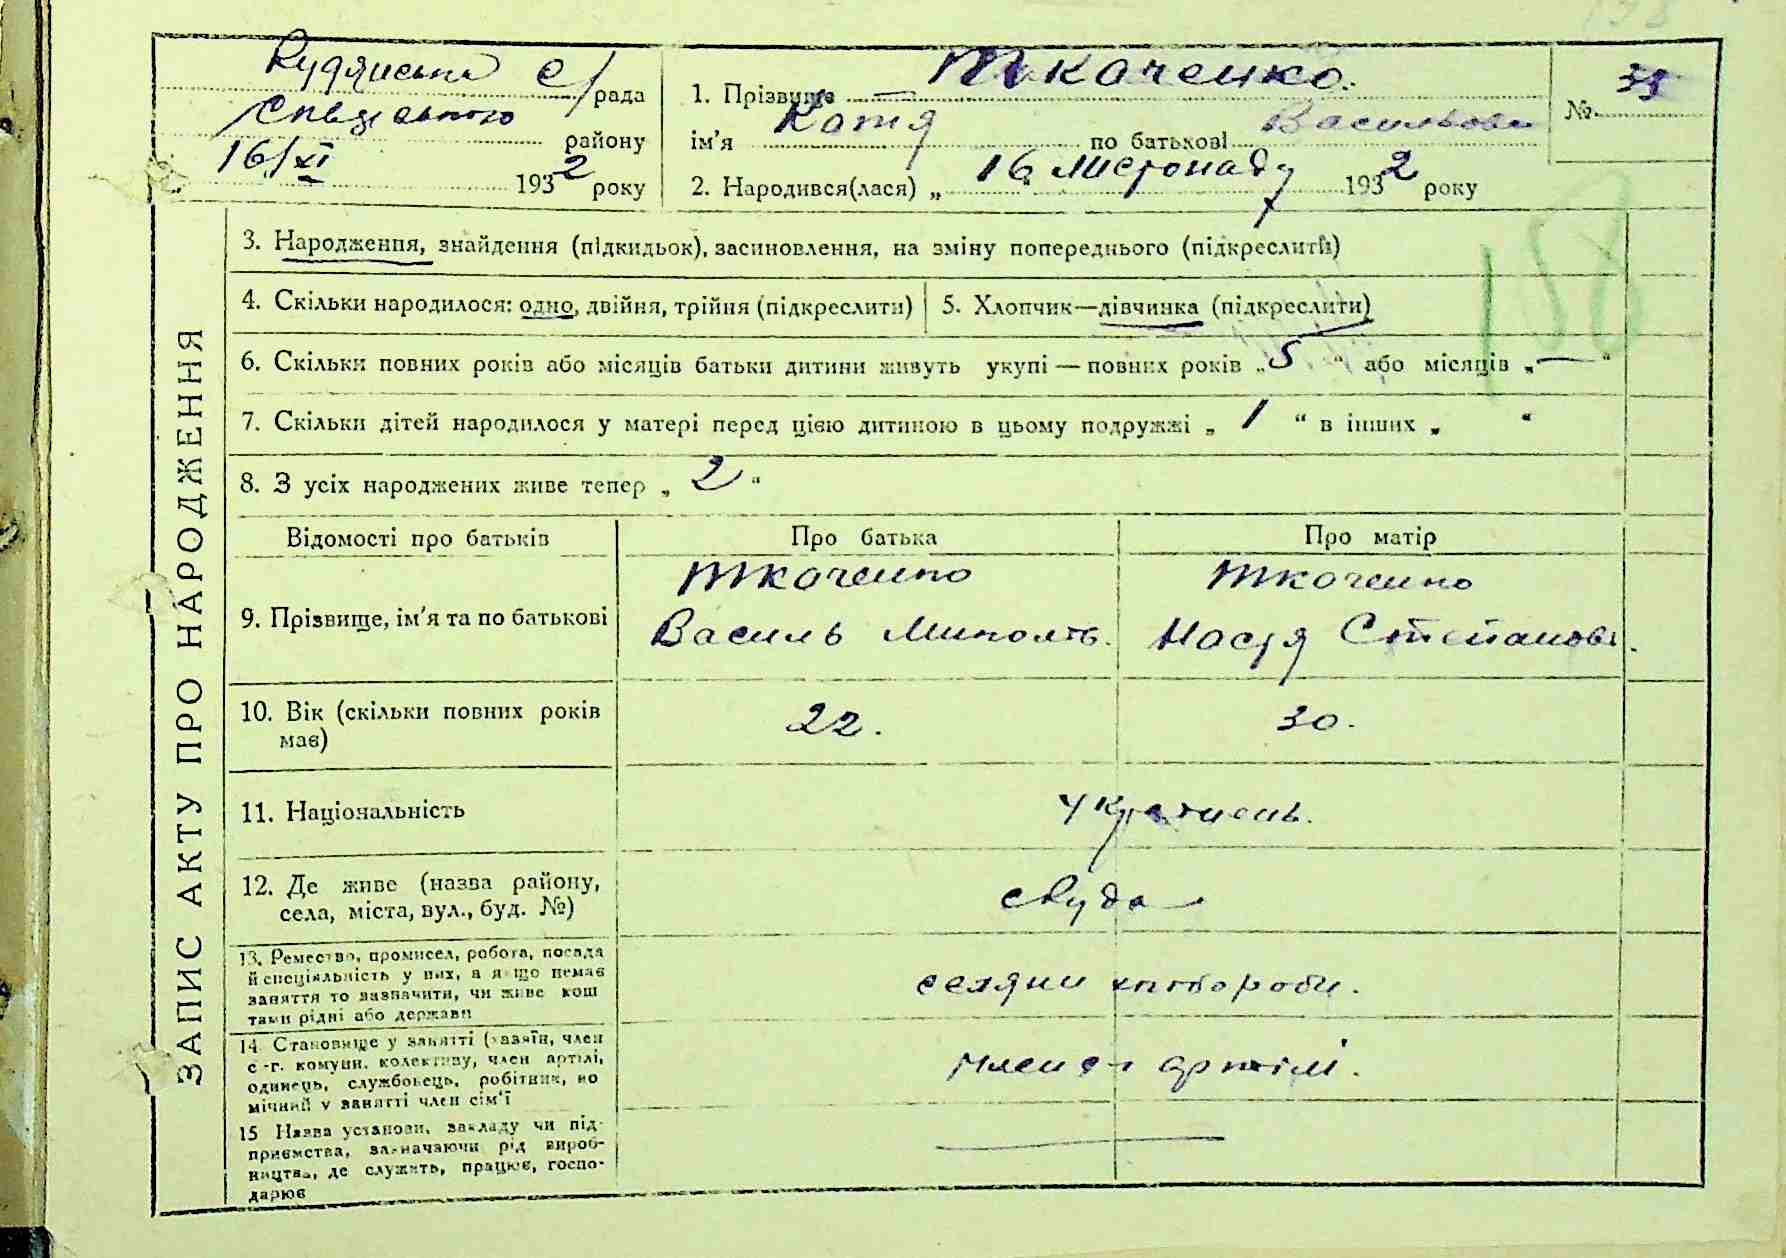 Рудянська с/рада
районну
16/XI 1932 року
1. Прізвище Ткаченко.
ім'я Катя по батькові Васильовн
2. Народився(лася) „16 листопаду 1932 року
№ 35
ЗАПИС АКТУ ПРО НАРОДЖЕННЯ
3. Народження, знайдення (підкидьок), засиновлення, на зміну попереднього (підкреслити)
4. Скільки народилося: одно, двійня, трійня (підкреслити)
5. Хлопчик—дівчинка (підкреслити)
6. Скільки повних років або місяців батьки дитини живуть укупі — повних років „5“ або місяців „—“
7. Скільки дітей народилося у матері перед цією дитиною в цьому подружжі „1“ в інших „ “
8. З усіх народжених живе тепер „2“
Відомості про батьків
Про батька
Про матір
9. Прізвище, ім'я та по батькові
Ткаченко
Василь
Ткаченко
Настя Степанов.
10. Вік (скільки повних років
має)
22.
30.
11. Національність
Українець.
12. Де живе (назва району,
села, міста, вул., буд. №)
с Руда
13. Ремество, промисел, робота, посада
й спеціяльність у них, а якщо немає
заняття то зазначити, чи живе кош
тами рідні або держави
селяни хлібороби.
14. Становище у занятті (хазяїн, член
с.-г. комуни, колективу, член артілі,
одинець, службовець, робітник, по
мічний у занятті член сім'ї
член с-г артілі.
15 Назва установи, закладу чи під-
приємства, зазначаючи рід вироб-
ництва, де служить, працює, госпо-
дарює